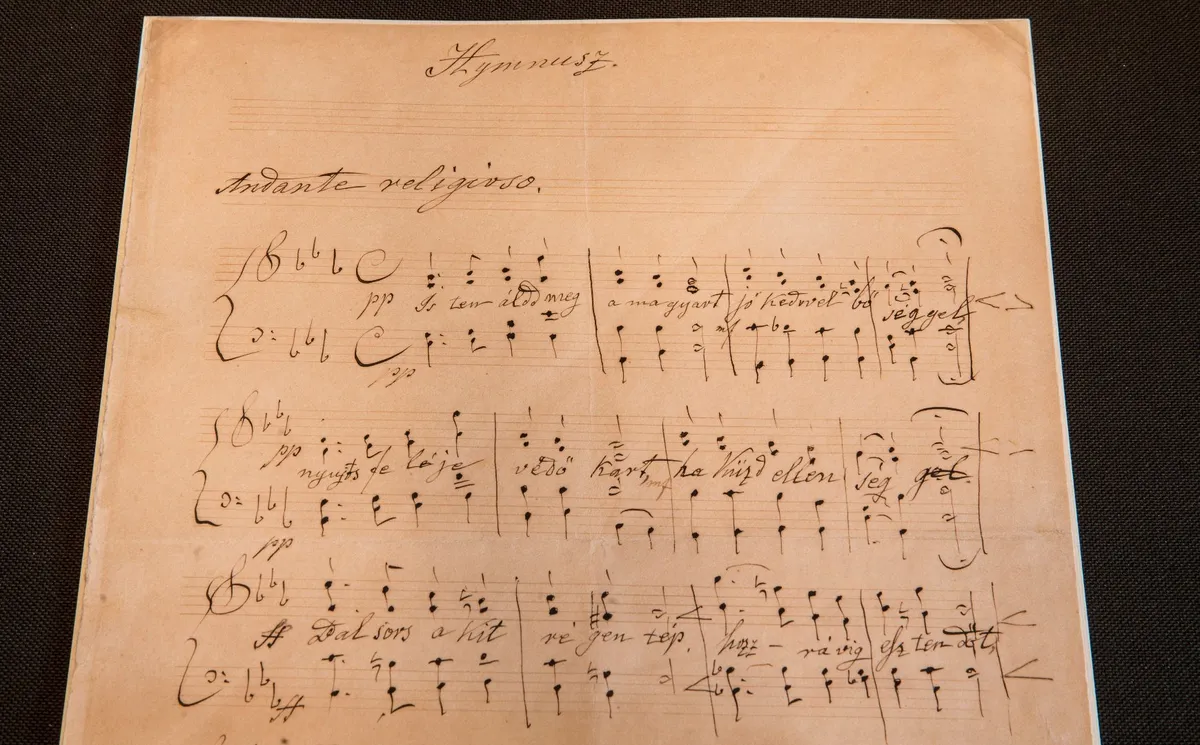 Hymnusz.
Andante religioso.
pp Is ten áldd meg a magyart jó kedvvel bő séggel
mf
pp
pp nyujts fe lé je védő kart ha küzd ellen ség gel.
mf
pp
ff Bal sors a kit ré gen tép, hozz - rá víg esz ten dőt,
ff